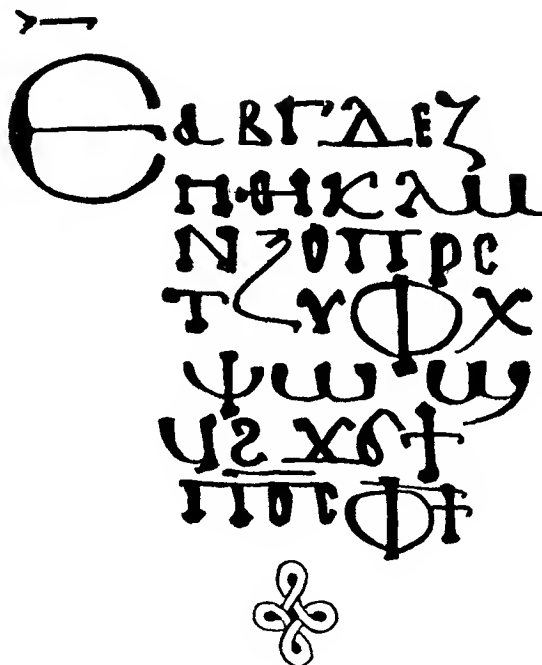 Ⲉ ⲁ ⲃ ⲅ ⲇ ⲉ ⲍ
ⲏ ⲑ ⲓ ⲕ ⲗ ⲙ
ⲛ ⲝ ⲟ ⲡ ⲣ ⲥ
ⲧ ⲩ ⲫ ⲭ
ⲯ ⲱ ϣ
ϥ ϩ ϫ ϭ ϯ
ⲡ̅ⲟ̅ⲥ̅ ⲫ̅ϯ̅